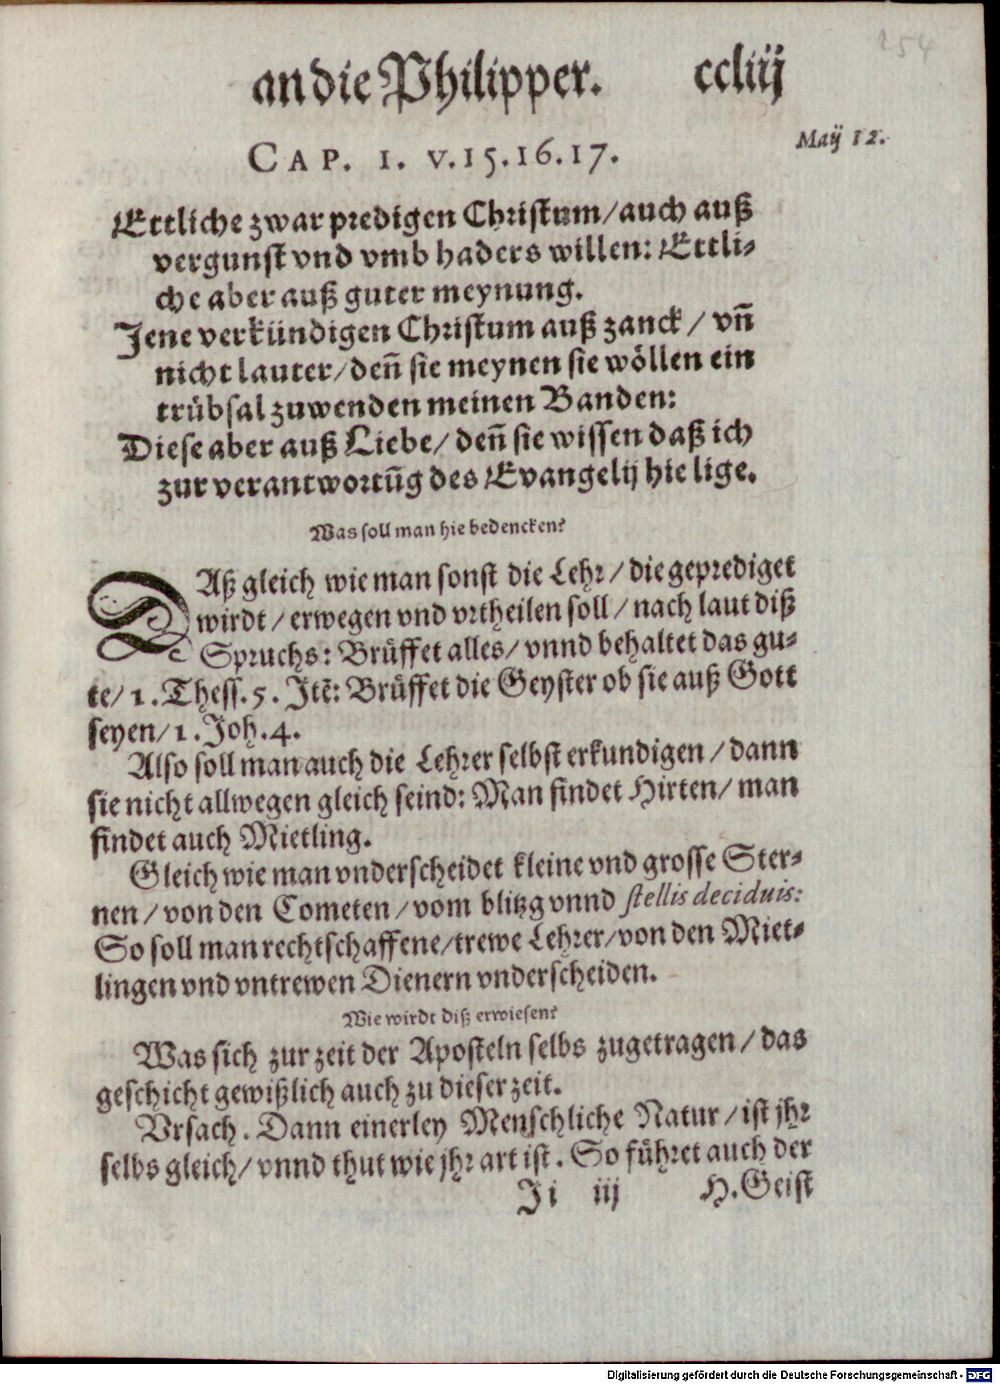 254
an die Philipper. ccliij
Maÿ 12.
CAP. 1. v.15.16.17.
Ettliche zwar predigen Christum/auch auß
vergunst vnd vmb haders willen: Ettli-
che aber auß guter meynung.
Jene verkündigen Christum auß zanck / vñ
nicht lauter/deñ sie meynen sie wöllen ein
trübsal zuwenden meinen Banden:
Diese aber auß Liebe/ deñ sie wissen daß ich
zur verantwortũg des Evangelij hie lige.
Was soll man hie bedencken?
DAß gleich wie man sonst die Lehr / die geprediget
wirdt / erwegen vnd vrtheilen soll / nach laut diß
Spruchs: Brüffet alles/ vnnd behaltet das gu-
te/ 1. Thess. 5. Jtẽ: Brüffet die Geyster ob sie auß Gott
seyen/ 1. Joh. 4.
Also soll man auch die Lehrer selbst erkundigen / dann
sie nicht allwegen gleich seind: Man findet Hirten/ man
findet auch Mietling.
Gleich wie man vnderscheidet kleine vnd grosse Ster-
nen / von den Cometen / vom blitzg vnnd stellis deciduis:
So soll man rechtschaffene/trewe Lehrer/von den Miet-
lingen vnd vntrewen Dienern vnderscheiden.
Wie wirdt diß erwiesen?
Was sich zur zeit der Aposteln selbs zugetragen / das
geschicht gewißlich auch zu dieser zeit.
Vrsach. Dann einerley Menschliche Natur / ist jhr
selbs gleich/ vnnd thut wie jhr art ist. So führet auch der
Ji iij H. Geist
Digitalisierung gefördert durch die Deutsche Forschungsgemeinschaft - DFG